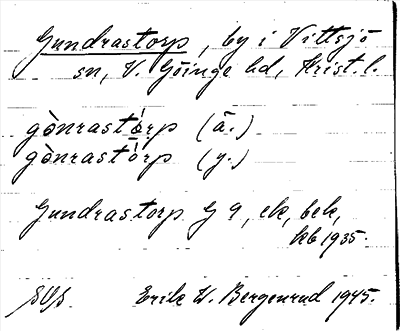 Gundrastorp, by i Vittsjö
sn, V. Göinge hd, Krist. l.
gònrastórp (ä.)
gònrastórp (y.)
Gundrastorp G 9, ek, bek,
kb 1935.
Erik W. Bergenrud 1945.